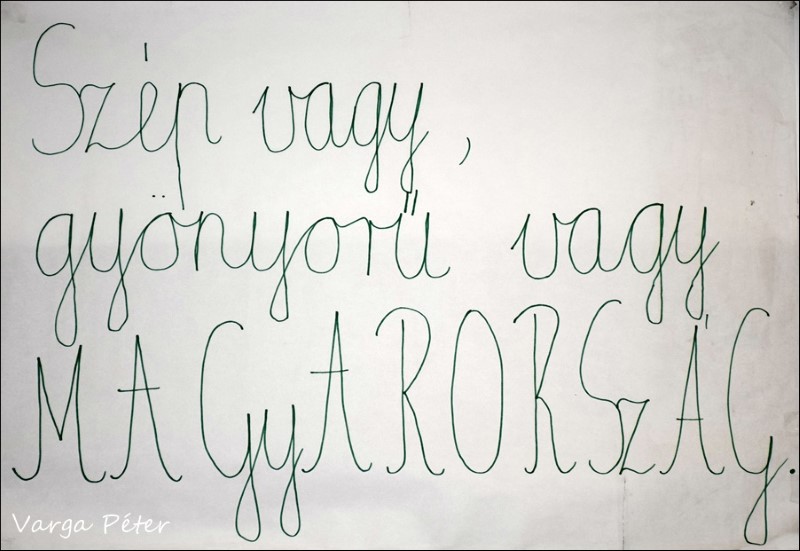 Szép vagy,
gyönyorű vagy
MAGyARORSzÁG.
Varga Péter